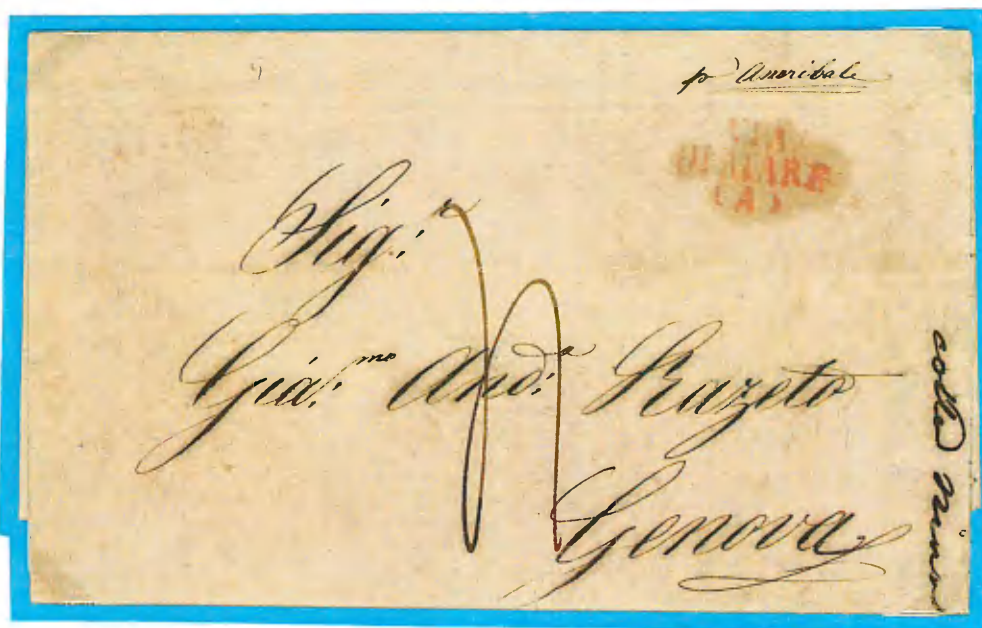 p Annibale
VIA
DI MARE
(A)
Sig.r
Gia.mo And.a Razeto
Genova
colla Nina